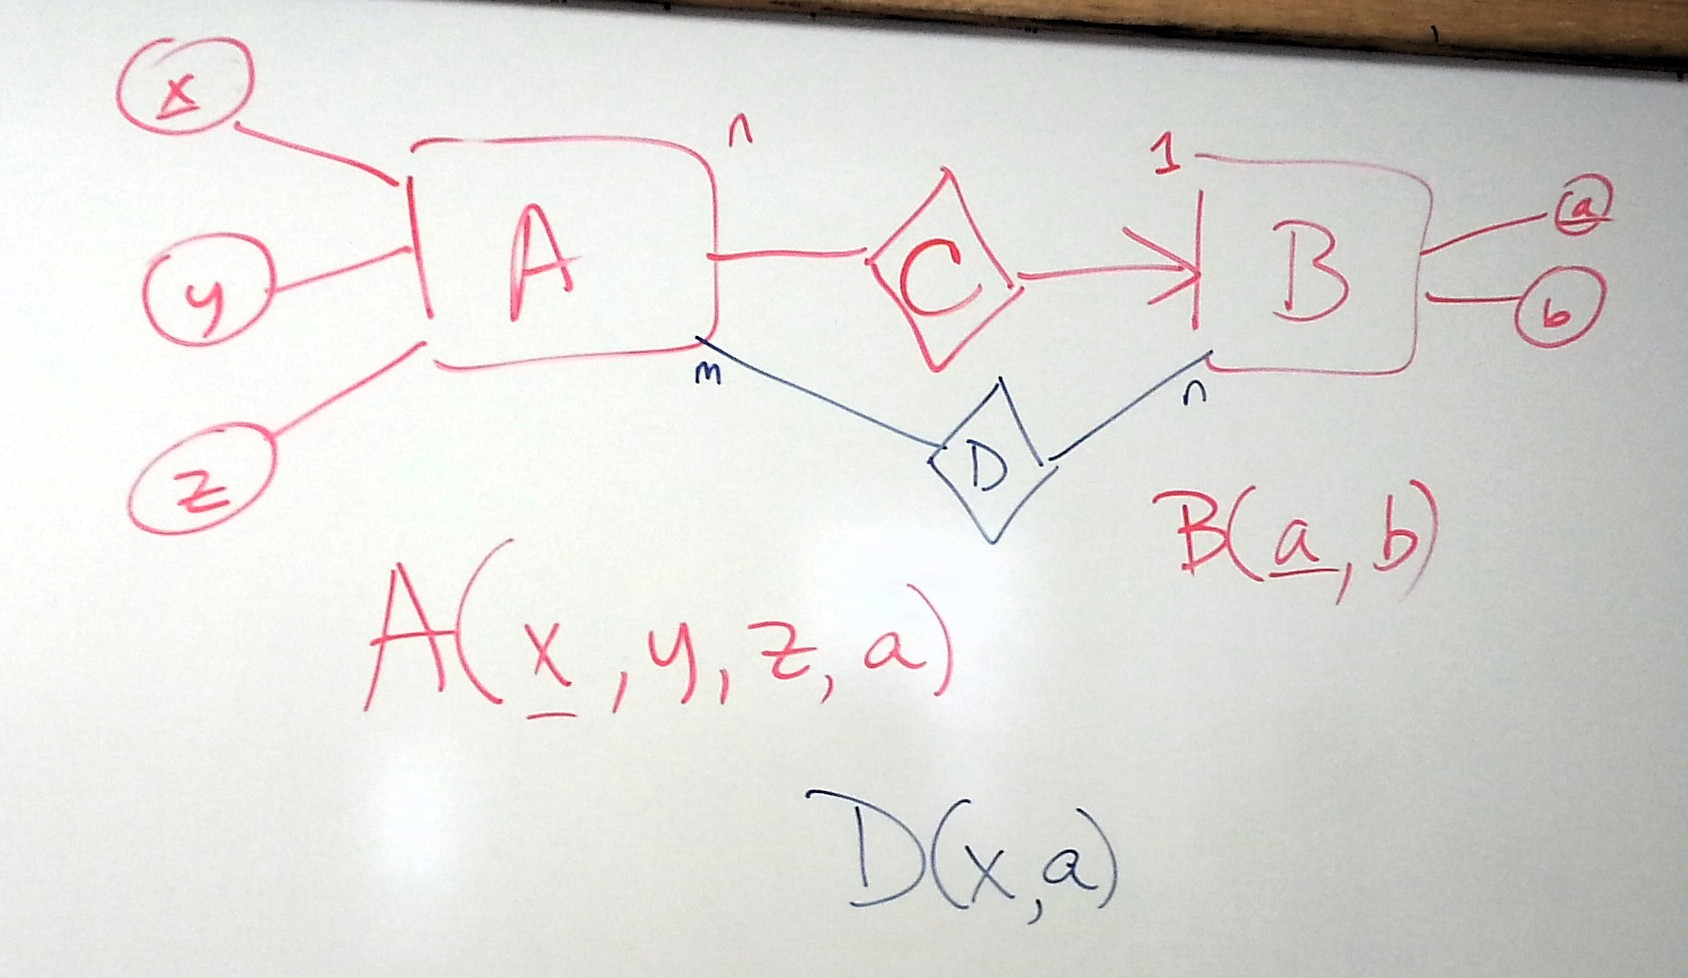 x
n
1
a
y
A
C
B
b
m
n
z
D
B(a, b)
A(x, y, z, a)
D(x, a)